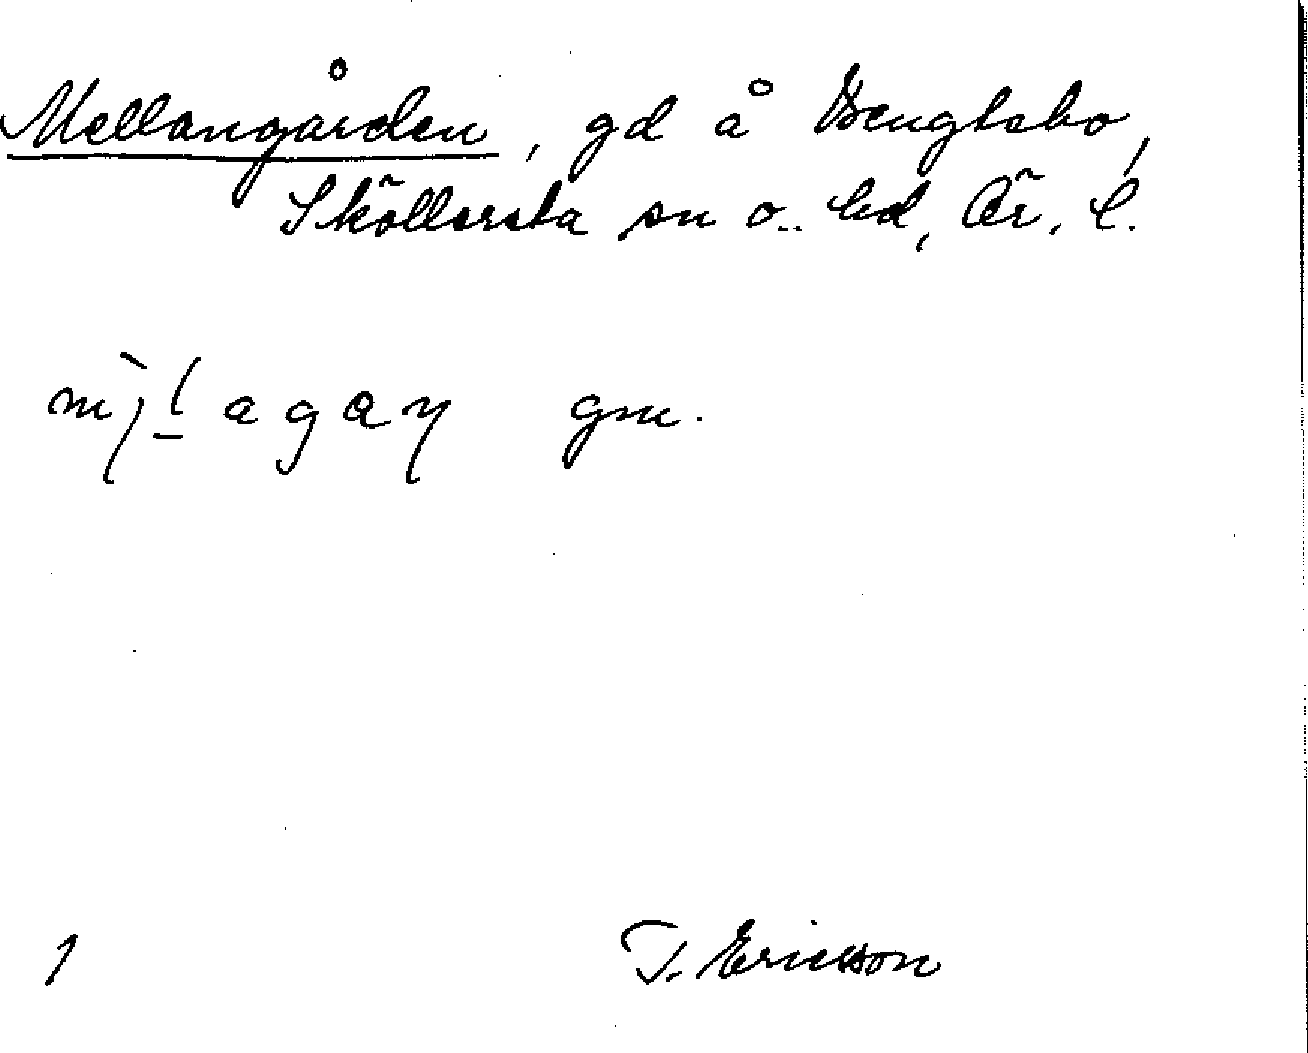 Mellangården, gd å Bengtsbo,
Sköllersta sn o. hd, Ör. l.
gm.
1
T. Ericsson